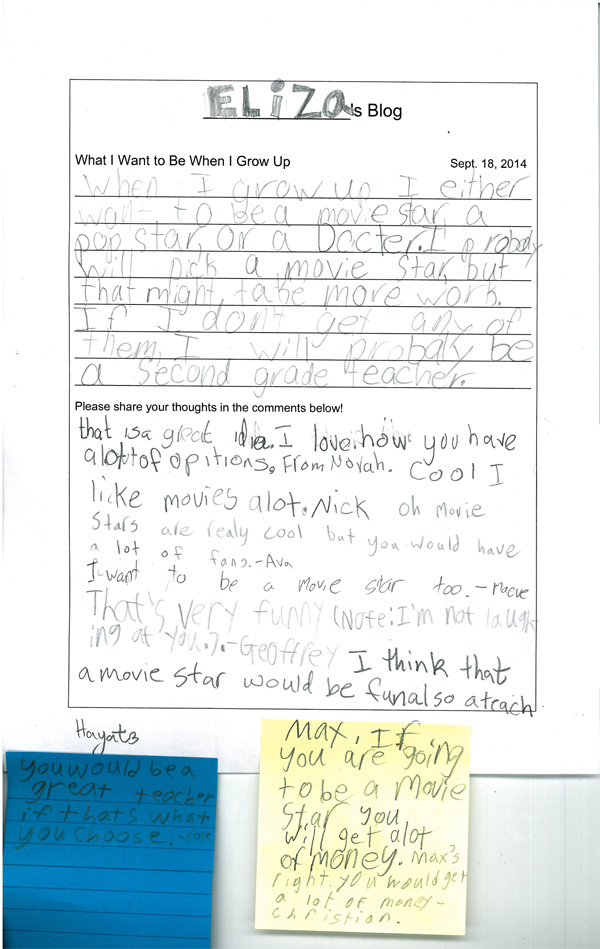 ELiZA's Blog
What I Want to Be When I Grow Up Sept. 18, 2014
When I grow up I either
want to be a movie star, a
pop star, or a Docter. I probaly
will pick a movie star, but
that might take more work.
If I don't get any of
them, I will probaly be
a second grade teacher.
Please share your thoughts in the comments below!
that is a great idea. I love how you have
alot of opitions, From Norah. Cool I
licke movies alot. Nick oh Movie
Stars are realy cool but you would have
a lot of fans.-Ava
I want to be a movie star too.-Maeve
That's very funny (Note: I'm not laugh
ing at you.).-Geoffrey I think that
a movie star would be fun also a teach
Hayat
you would be a
great teacher
if thats what
you choose.-cole
Max, If
you are going
to be a Movie
Star you
will get alot
of money. Max's
right. you would get
a lot of money-
christian.